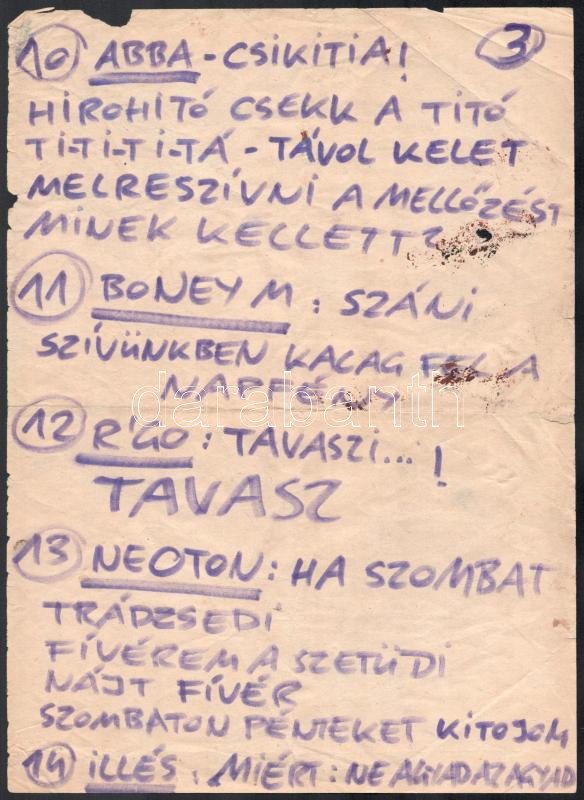 10 ABBA - CSIKITIA! 3
HIROHITÓ CSEKK A TITÓ
TI-TI-TI-TÁ - TÁVOL KELET
MELRESZÍVNI A MELLŐZÉST
MINEK KELLETT?
11 BONEY M : SZÁNI
SZÍVÜNKBEN KACAG FEL A
NAPFÉNY
12 R'GO : TAVASZI...!
TAVASZ
13 NEOTON : HA SZOMBAT
TRÁDZSEDI
FÍVÉREM A SZETÜDI
NÁJT FÍVÉR
SZOMBATON PÉNTEKET KITOJOM
14 ILLÉS : MIÉRT : NE AGYAD AZ AGYAD
darabanth